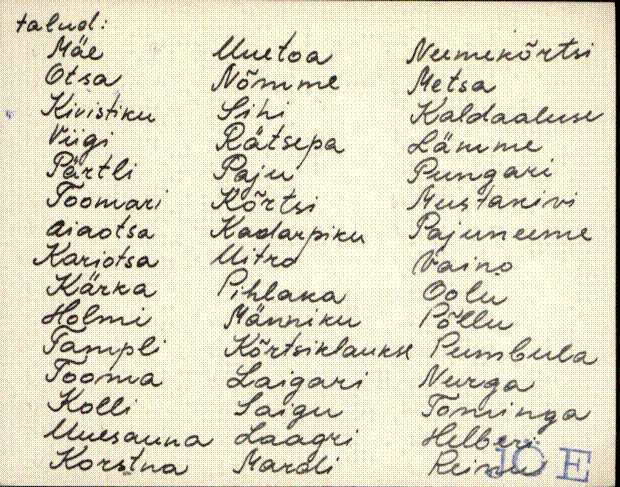 talud:
Mäe Uuetoa Neemekõrtsi
Otsa Nõmme Metsa
Kivistiku Sihi Kaldaaluse
Viigi Rätsepa Lämme
Pärtli Paju Pungari
Toomari Kõrtsi Mustakivi
Aiaotsa Kadarpiku Pajuneeme
Karjotsa Mitro Vaino
Kärka Pihlaka Oolu
Holmi Männiku Põllu
Tampli Kõrtsiklaukse Pumbula
Tooma Laigari Nurga
Kolli Saigu Tominga
Uuesauna Laagri Helberi
Korstna Mardi
JÕE